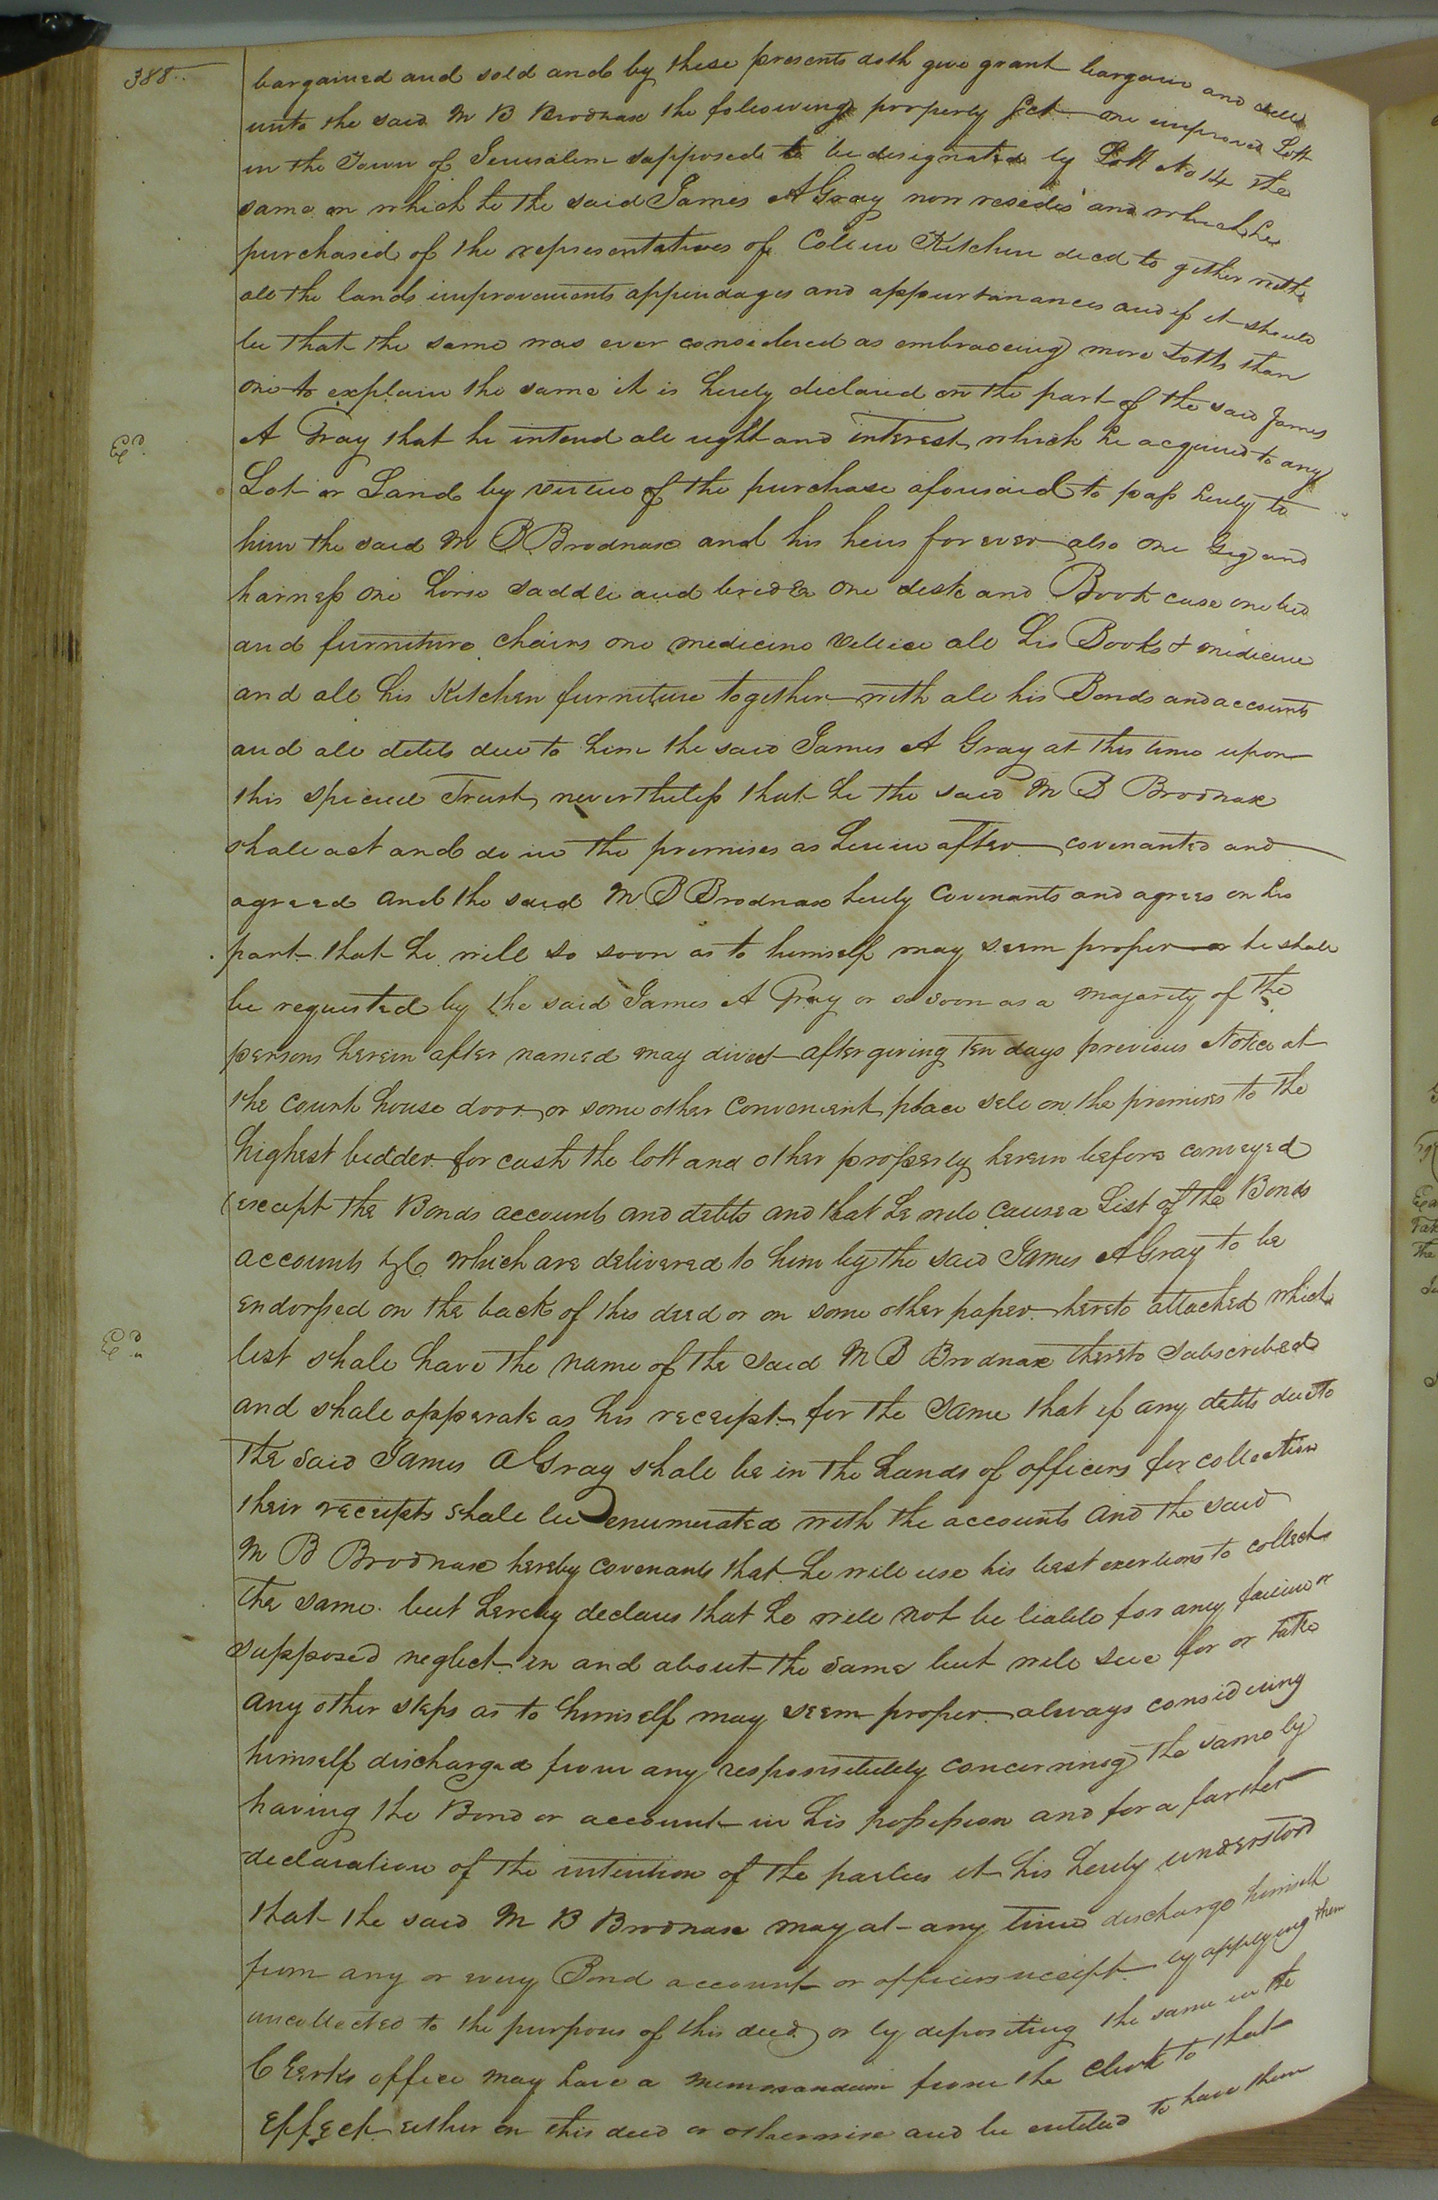 388
bargained and sold and by these presents doth give grant bargain and sell
unto the said M B Brodnax the following property Set one improved Lott
in the Town of Jerusalem supposed to be designated by Lott No 14 the
same on which he the said James A Gray now resides and which he
purchased of the representatives of Colin Kitchen decd to gether with
all the lands improvements appendages and appurtinances and if it should
be that the same was ever considered as embraceing more Lotts than
one to explain the same it is hereby declared on the part of the said James
A Gray that he intend all right and interest which he acquired to any
Lot or Land by virtue of the purchase aforesaid to pass hereby to
him the said M B Brodnax and his heirs for ever also one Gig and
harness one horse saddle and bridle one desk and Book case one bed
and furniture chairs one medicine vellice all his Books & medicine
and all his Kitchen furniture together with all his Bonds and accounts
and all debts due to him the said James A Gray at this time upon
this special Trust nevertheless that he the said M B Brodnax
shall act and do in the premises as herein after covenanted and
agreed and the said M B Brodnax hereby covenants and agrees on his
part that he will so soon as to himself may seem proper or he shall
be requested by the said James A Gray or so soon as a majority of the
persons herein after named may direct after giving ten days previous Notice at
the court house door or some other convenient place sell on the premises to the
highest bidder for cash the lott and other property herein before conveyed
(except the Bonds accounts and debts and that he will cause a List of the Bonds
accounts &C which are delivered to him by the said James A Gray to be
endorssed on the back of this deed or on some other paper hereto attached which
list shall have the name of the said M B Brodnax thereto subscribed
and shall opperate as his receipt for the same that if any debts due to
the said James A Gray shall be in the hands of officers for collection
their receipts shall be enumerated with the accounts and the said
M B Brodnax hereby covenants that he will use his best exertions to collect
the same but hereby declares that he will not be liable for any failure or
supposed neglect in and about the same but will sue for or take
any other steps as to himself may seem proper always considering
himself discharged from any responsibility concerning the same by
having the Bond or account in his possession and for a farther
declaration of the intention of the parties it his hereby understood
that the said M B Brodnax may at any time discharge himself
from any or every Bond account or officers receipt by applying them
uncollected to the purpous of this deed or by depositing the same in the
Clerks office may have a memorandum from the clerk to that
effect either on this deed or otherwise and be entitled to have them